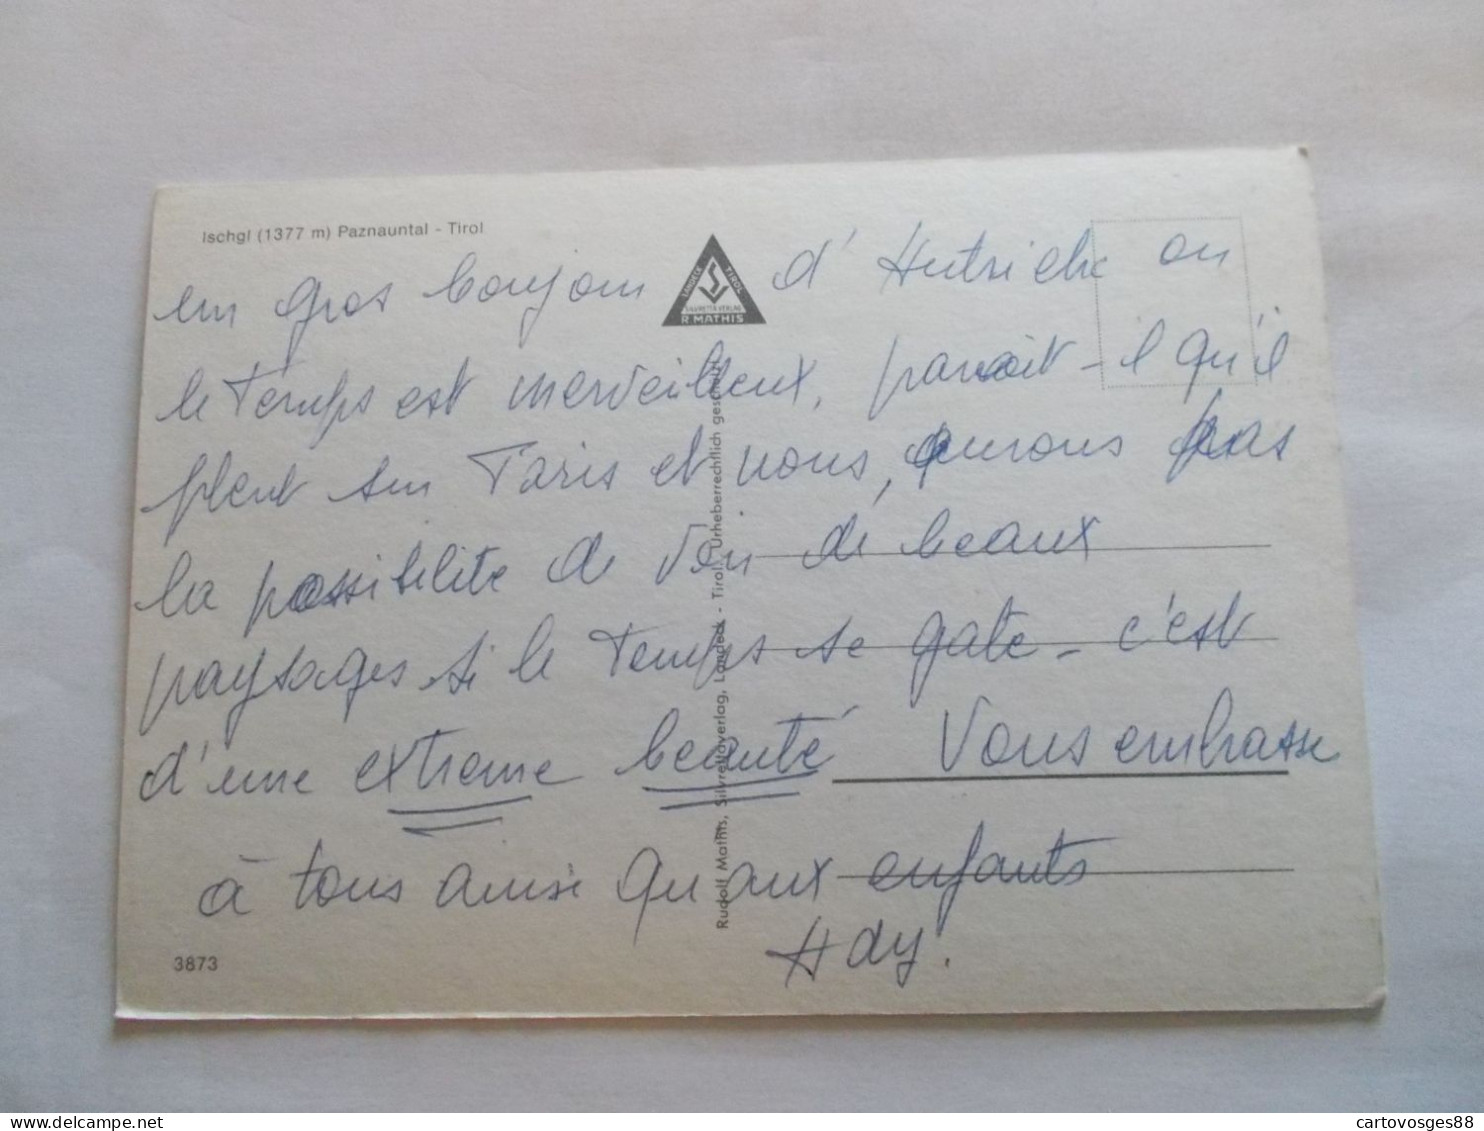 Ischgl (1377 m) Paznauntal - Tirol
un gros bonjour d'Autriche ou
le temps est merveilleux, paraoit-il qu'il
pleut sur Paris et nous, aurons pas
la possibilite de voir de beaux
paysages si le temps se gate - c'est
d'une extreme beauté Vous embrasse
à tous ainsi qu'aux enfants
Ady.
3873
LANDECK TIROL
SILVRETTA VERLAG
R. MATHIS
Rudolf Mathis, Silvrettaverlag, Landeck - Tirol. Urheberrechtlich geschützt
cartovosges88